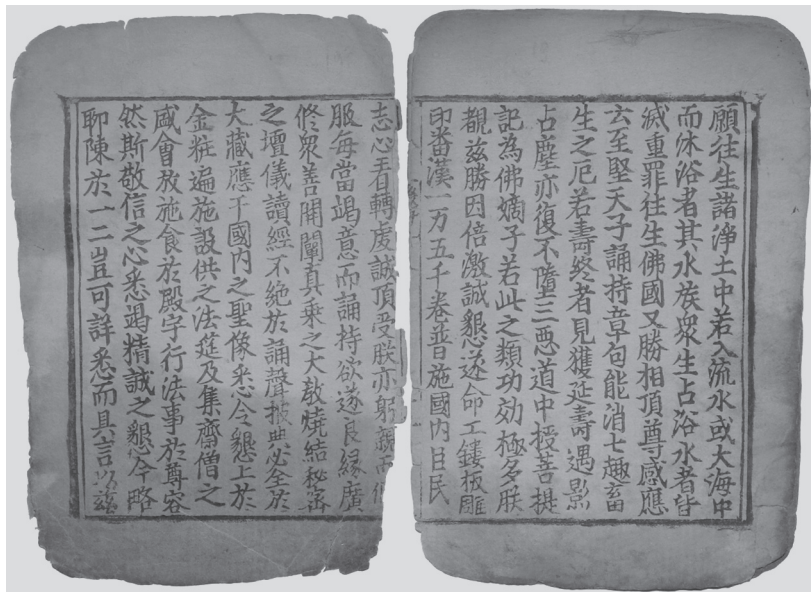 願往生諸淨土中若入流水或大海中
而沐浴者其水族衆生占浴水者皆
滅重罪往生佛國又勝相頂尊感應
云至堅天子誦持章句能消七趣畜
生之厄若壽終者見獲延壽遇影
占塵亦復不墮三悪道中授菩提
記為佛嫡子若此之類功効極多朕
覩兹勝因倍激誠懇遂命工鏤板雕
印番漢一万五千卷普施國内臣民
志心看轉虔誠頂受朕亦躬親而
服每當竭意而誦持欲遂良緣廣
修衆善開闡真乘之大教燒結秘密
之壇儀讀經不絶於誦聲披典必全於
大藏應干國内之聖像悉令懇上於
金粧遍施設供之法筵及集齋僧之
盛會放施食於殿宇行法事於尊容
然斯敬信之心悉竭精誠之懇今略
聊陳於一二豈可詳悉而具言以兹